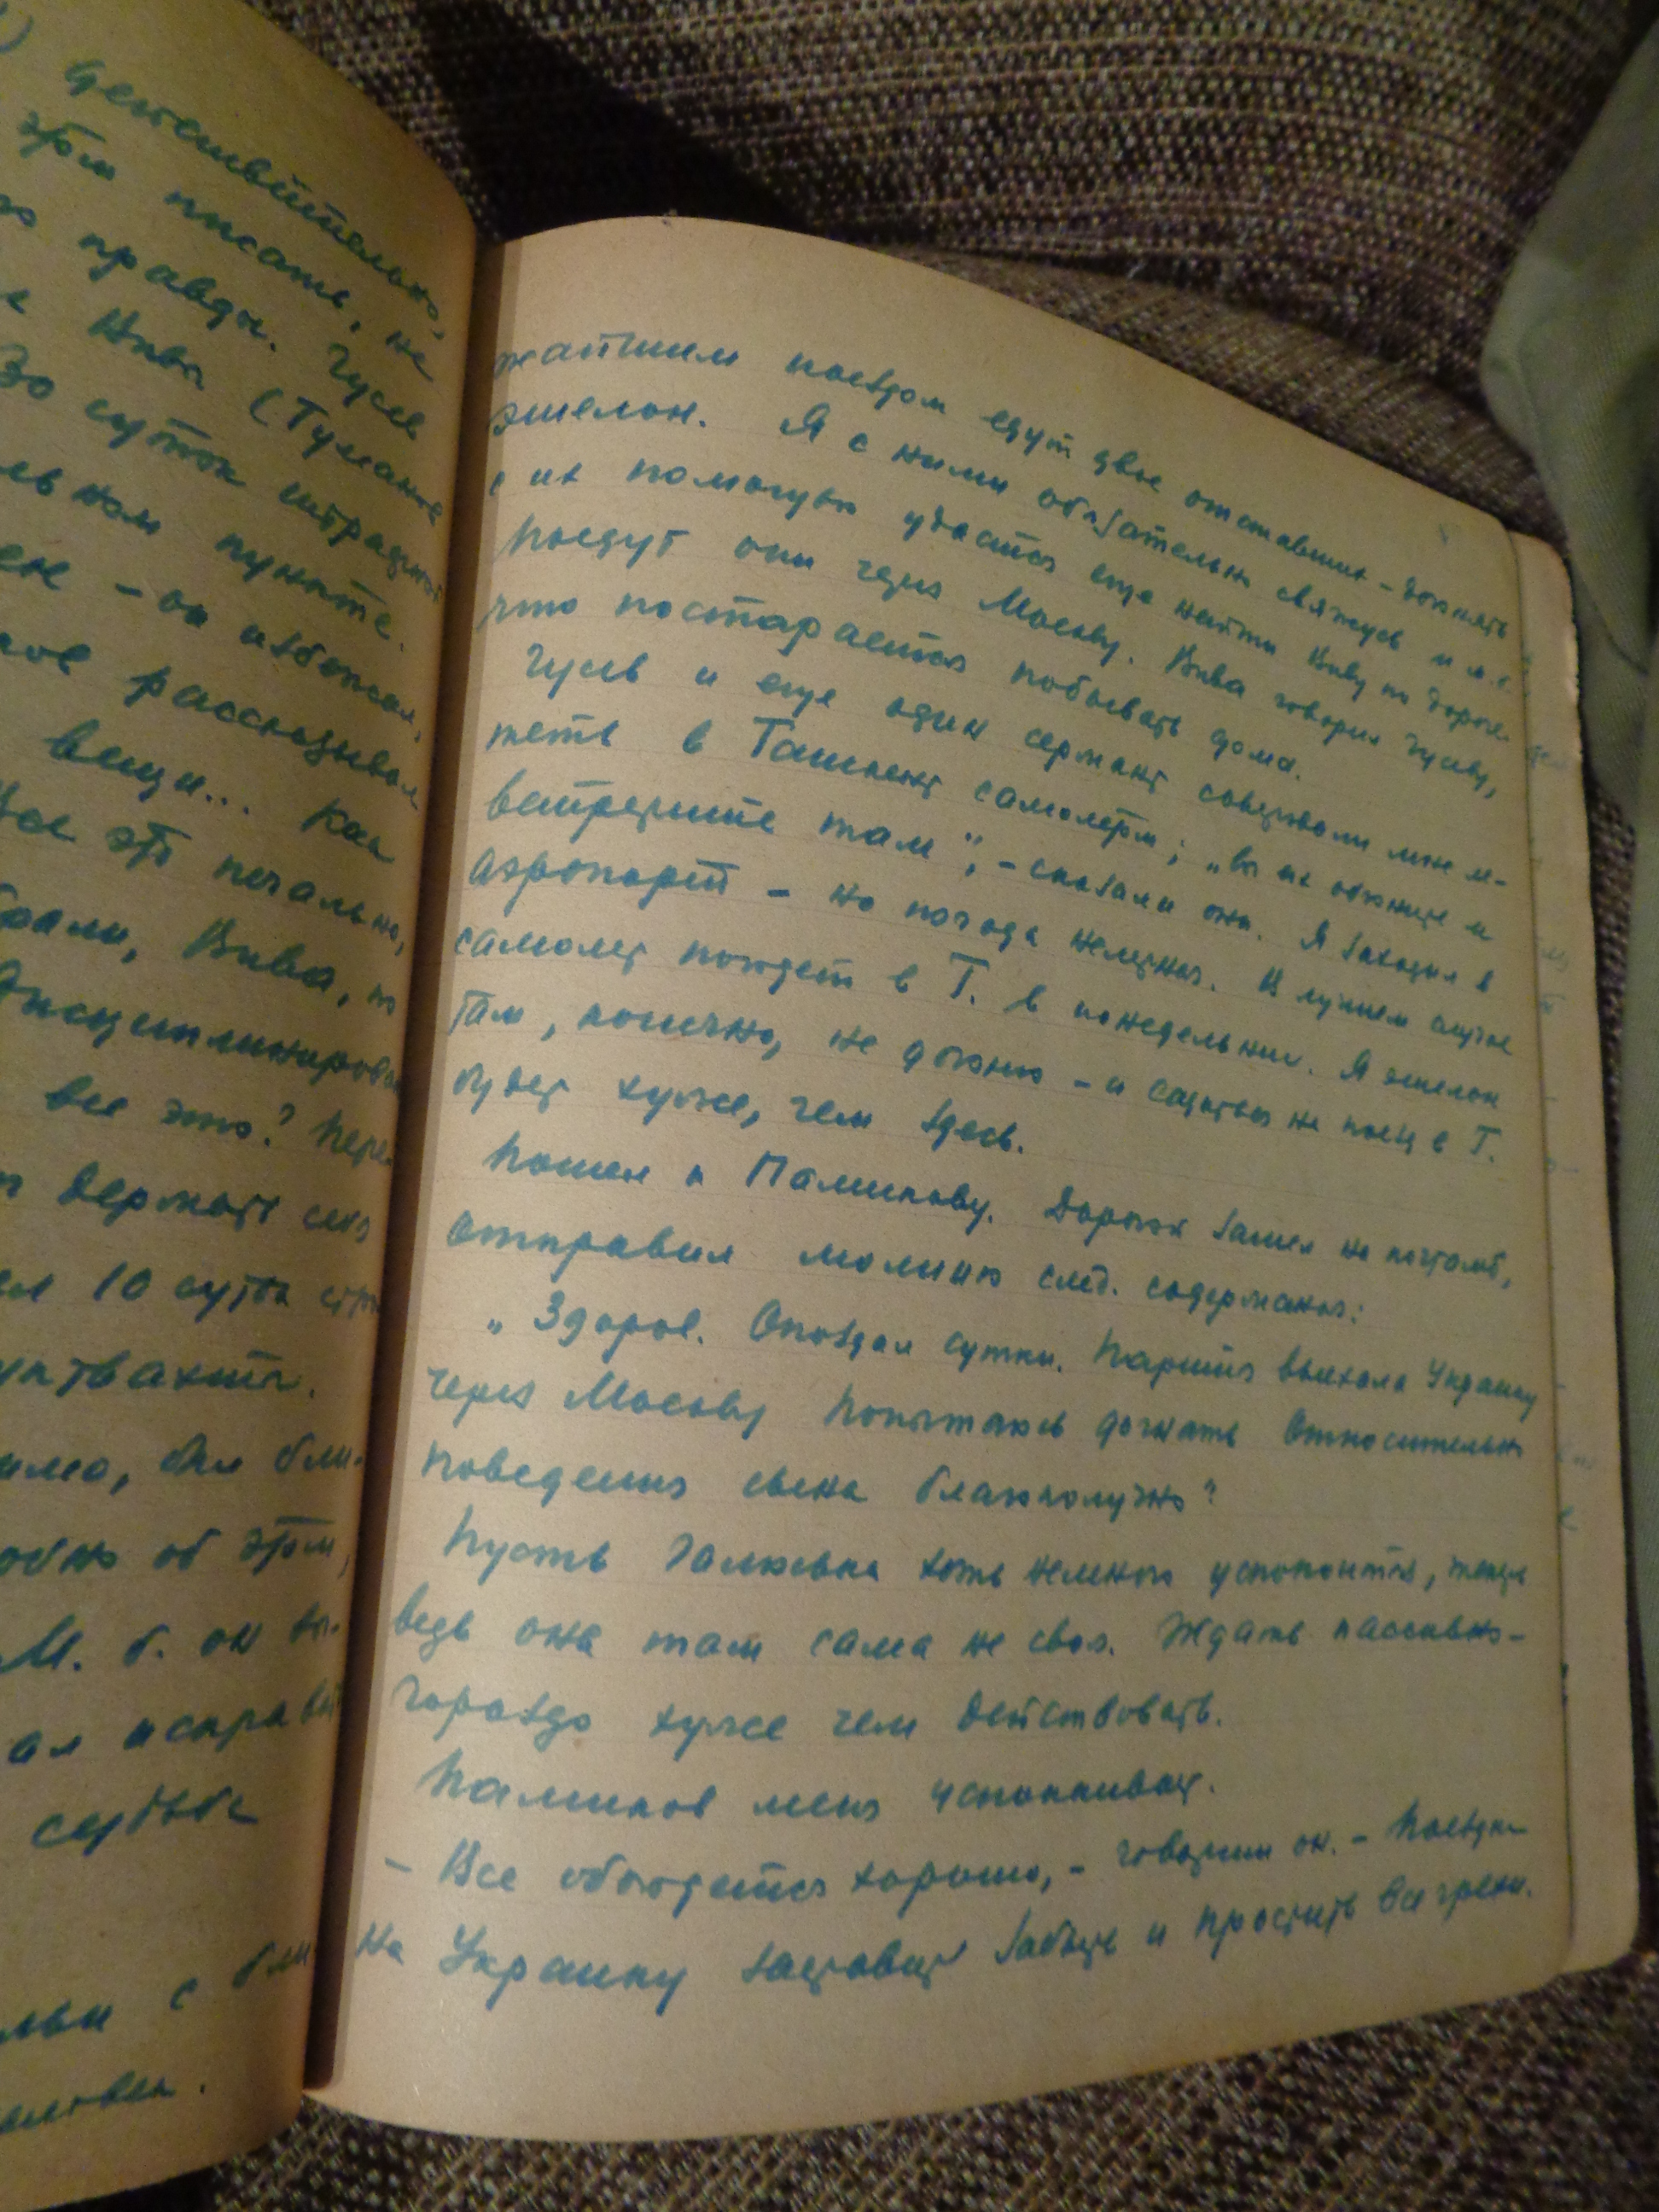 действительно,
этом писать, не
правды. Гусев
Вива (Туманов
30 суток
пункте.
он избежал,
рассказывал
вещи... Как
Все это печально,
брали, Вива, но
дисциплинирован
все это? Пере-
держать себя
10 суток
был бли-
об этом,
М. б. он вы-
исправить
судьбе
с бли
жайшим поездом едут двое отставших – догонять
эшелон. Я с ними обязательно свяжусь и м. б.
с их помощью удастся еще найти Виву по дороге.
Поедут они через Москву. Вива говорил Гусеву,
что постарается побывать дома.
Гусев и еще один сержант советовали мне ле-
теть в Ташкент самолетом; „вы их обгоните и
встретите там“, – сказали они. Я заходил в
аэропорт – но погода нелетная. В лучшем случае
самолет пойдет в Т. в понедельник. А эшелон
там, конечно, не догоню – и садиться на поезд в Т.
будет хуже, чем здесь.
Пошел к Паликову. Дорогой зашел на почтамт,
отправил молнию след. содержания:
„Здоров. Опоздал сутки. Партия выехала Украину
через Москву Попытаюсь догнать Относительно
поведения сына благополучно“
Пусть Галюсенька хоть немного успокоится,
ведь она там сама не своя. Ждать пассивно –
гораздо хуже чем действовать.
Паликов меня успокаивает.
– Все обойдется хорошо, – говорит он. – Поездка
на Украину заставит забыть и простить все грехи.